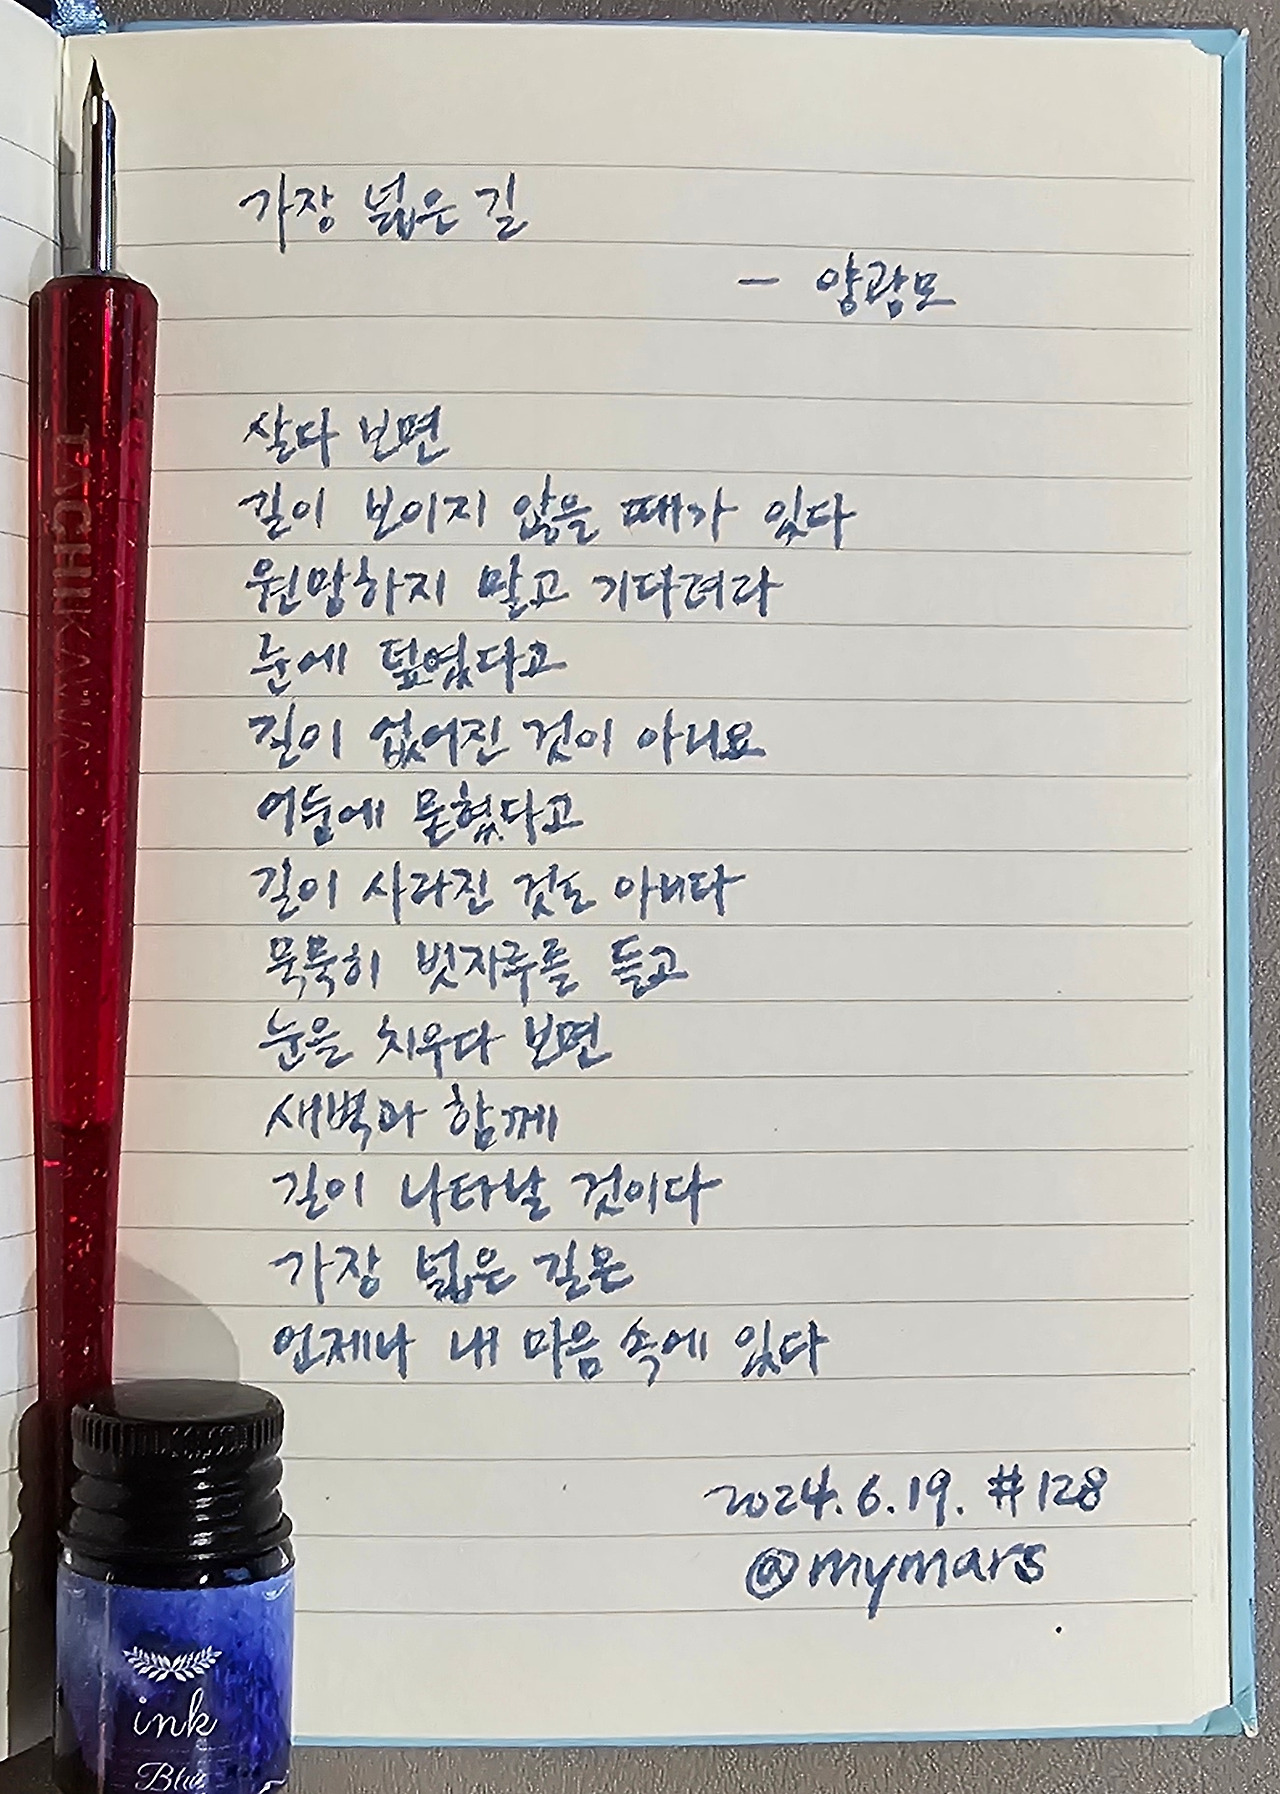 가장 넓은 길
- 양광모
살다 보면
길이 보이지 않을 때가 있다
원망하지 말고 기다려라
눈에 덮였다고
길이 없어진 것이 아니요
어둠에 묻혔다고
길이 사라진 것도 아니다
묵묵히 빗자루를 들고
눈을 치우다 보면
새벽과 함께
길이 나타날 것이다
가장 넓은 길은
언제나 내 마음 속에 있다
2024.6.19. #128
@mymars
TACHIKAWA
ink
Blue